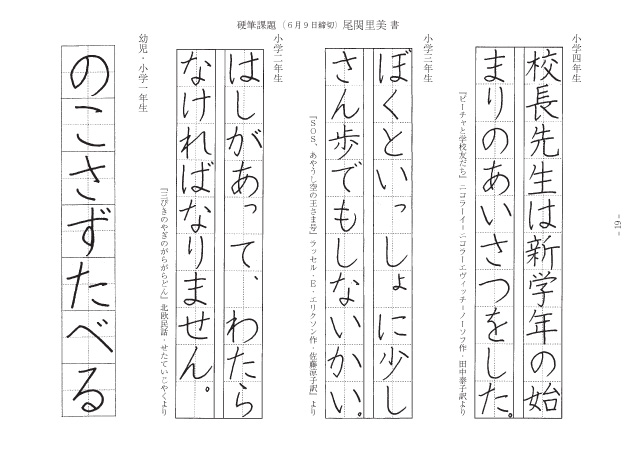 硬筆課題（６月９日締切）尾関里美 書
小学四年生
校長先生は新学年の始
まりのあいさつをした。
『ビーチャと学校友だち』ニコラーイ＝ニコラーエヴィッチ＝ノーソフ作・田中泰子訳より
小学三年生
ぼくといっしょに少し
さん歩でもしないかい。
『ＳＯＳ、あやうし空の王さま号』ラッセル・Ｅ・エリクソン作・佐藤凉子訳』より
小学二年生
はしがあって、わたら
なければなりません。
『三びきのやぎのがらがらどん』北欧民話・せたていじやくより
幼児・小学一年生
のこさずたべる
- 19 -